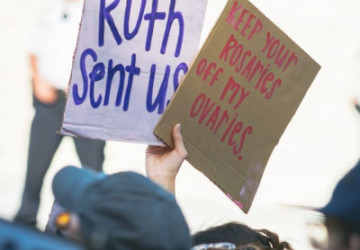 Ruth
Sent us
KEEP YOUR
ROSARIES
OFF MY
OVARIES.